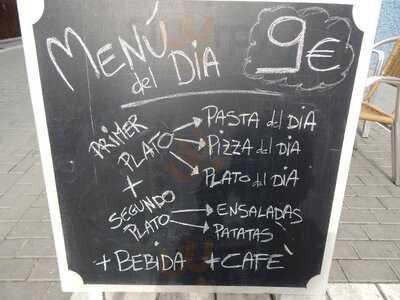 MENÚ
del DIA
9€
PRIMER
PLATO
PASTA del DIA
PIZZA del DIA
PLATO del DIA
+
SEGUNDO
PLATO
ENSALADAS
PATATAS
+ BEBIDA + CAFÉ